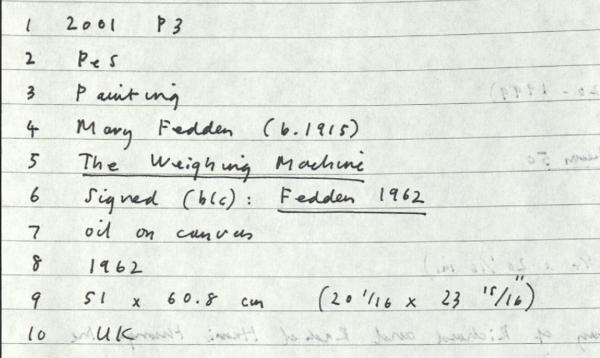 1 2001 P3
2 Pes
3 Painting
4 Mary Fedden (b.1915)
5 The Weighing Machine
6 Signed (blc): Fedden 1962
7 oil on canvas
8 1962
9 51 x 60.8 cm (20 1/16 x 23 15/16")
10 UK